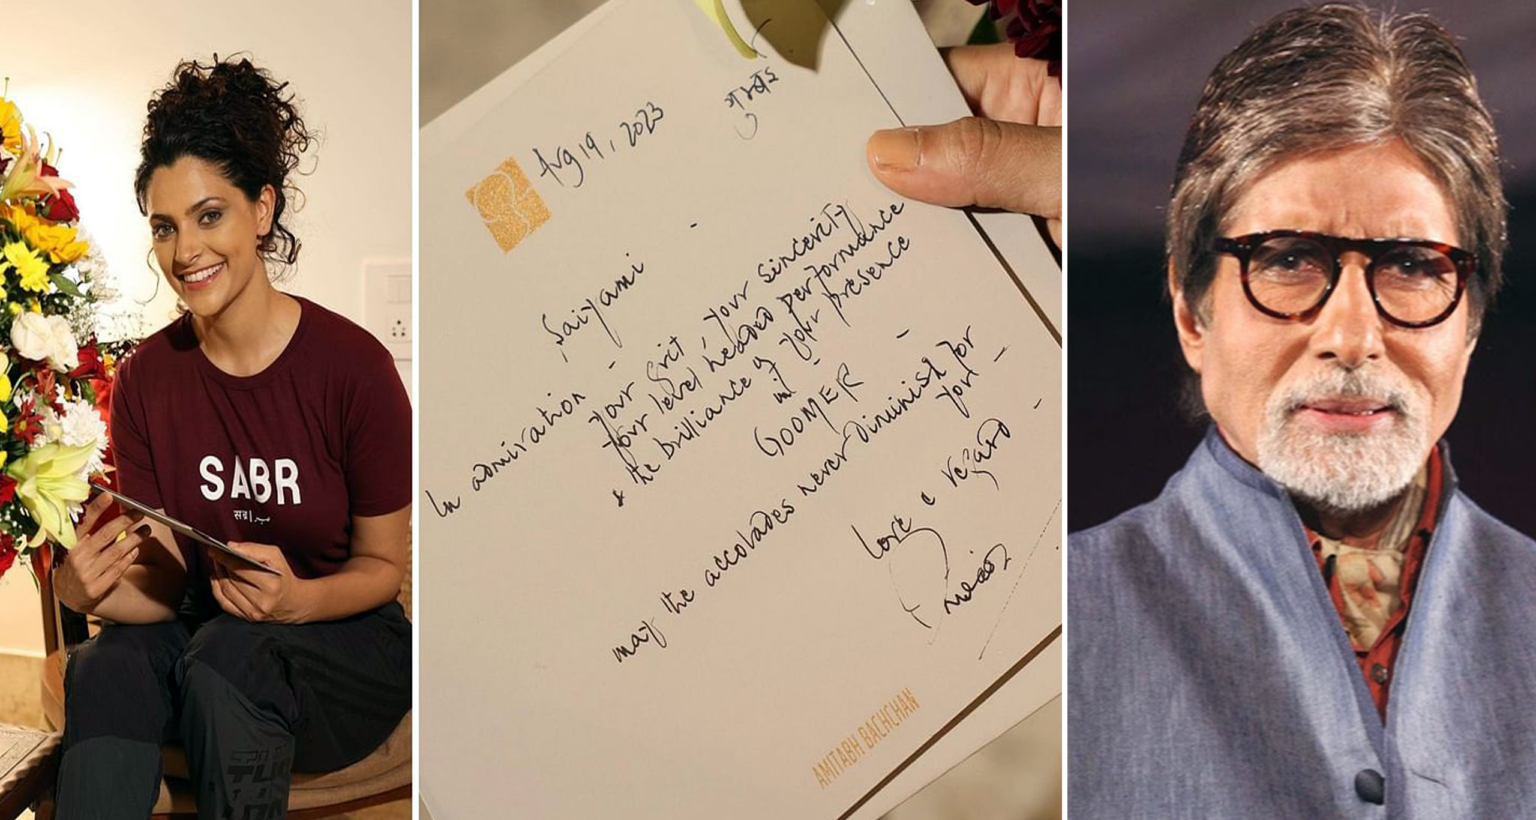 SABR
सब्र|صبر
Aug 19, 2023
मुम्बई
Saiyami -
In admiration -
your Grit, your sincerity
your level headed performance
& the brilliance of your presence
in -
GOOMER -
may the accolades never diminish for
you -
love & regard -
AMITABH BACHCHAN